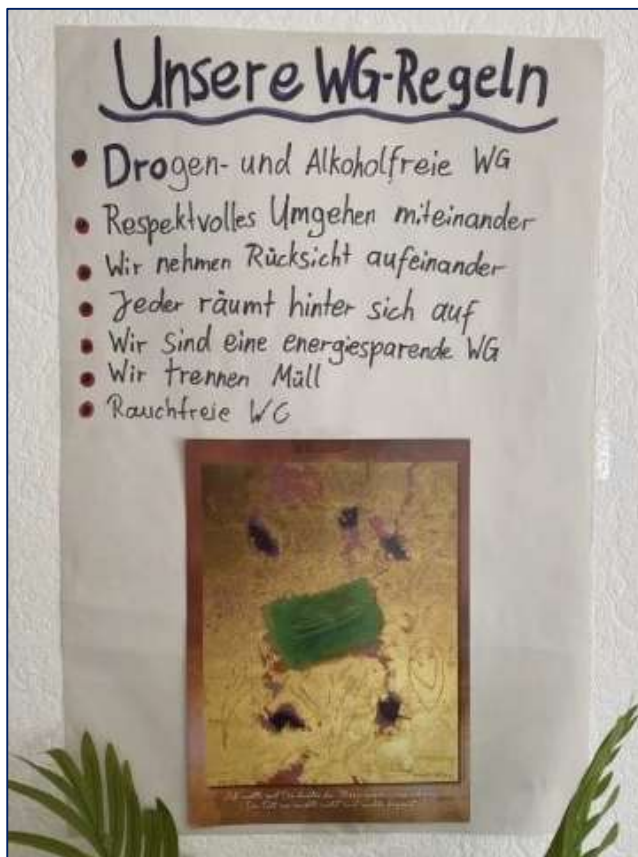 Unsere WG-Regeln
Drogen- und Alkoholfreie WG
Respektvolles Umgehen miteinander
Wir nehmen Rücksicht aufeinander
Jeder räumt hinter sich auf
Wir sind eine energiesparende WG
Wir trennen Müll
Rauchfreie WG